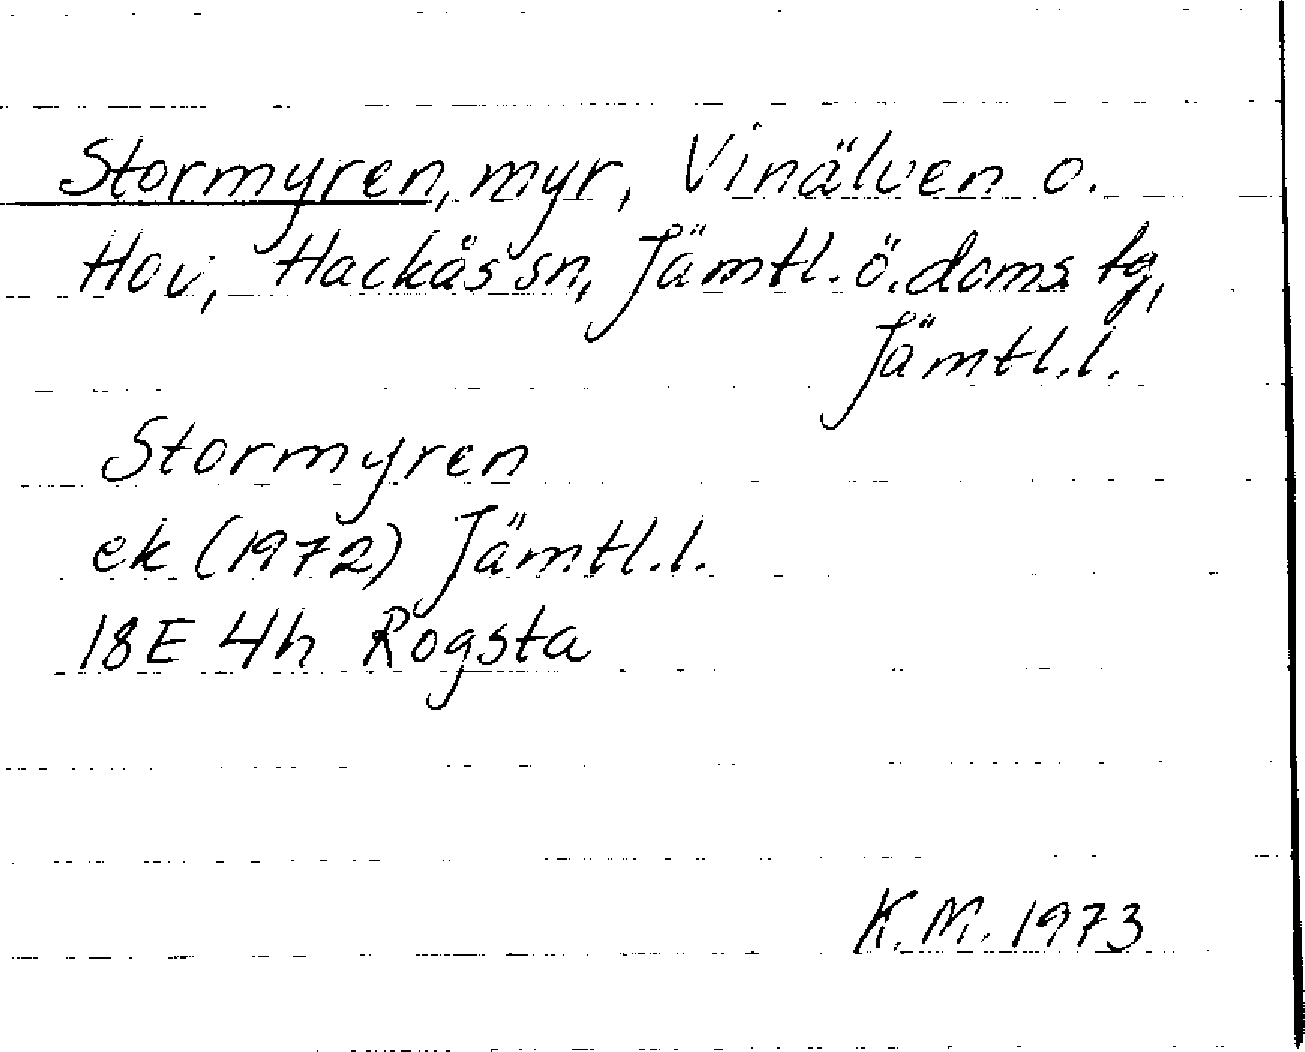 Stormyren, myr, Vinälven o.
Hov, Hackås sn, Jämtl. ö. doms. tg,
Jämtl. l.
Stormyren
ek (1972) Jämtl. l.
18E 4h Rogsta
K. M. 1973